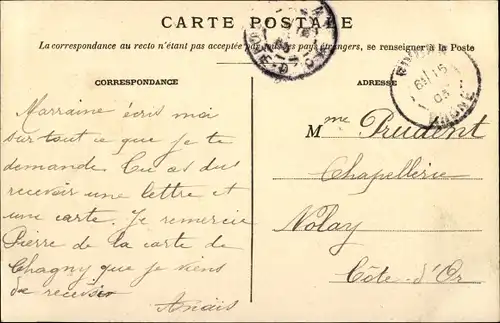 CARTE POSTALE
La correspondance au recto n'étant pas acceptée par tous les pays étrangers, se renseigner à la Poste
CORRESPONDANCE
Marraine écris moi
sur tout ce que je te
demande. Tu as dus
recevoir une lettre et
une carte. Je remercie
Pierre de la carte de
Chagny que je viens
de recevoir
Anaïs
ADRESSE
Mme Prudent
Chapellerie
Nolay
Côte-d'Or
RHONE